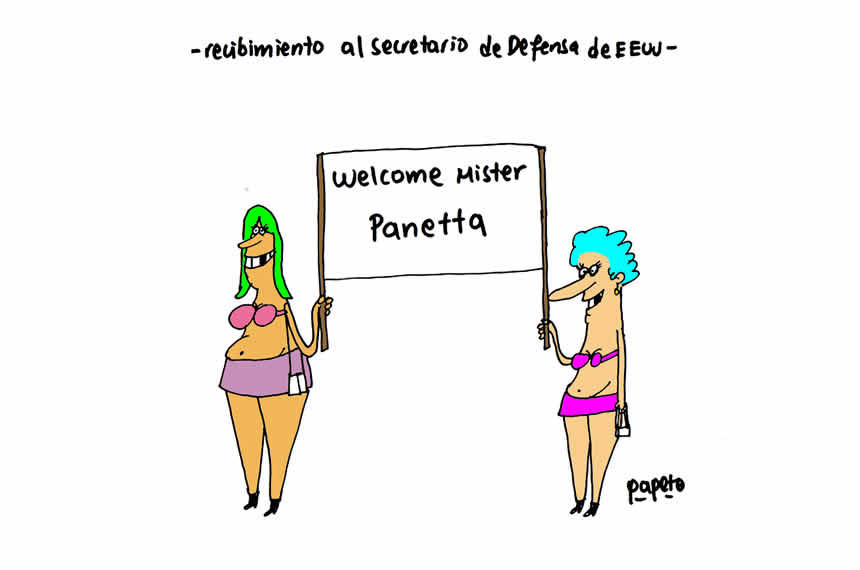 -recibimiento al secretario de Defensa de EEUU-
Welcome Mister
Panetta
papeto